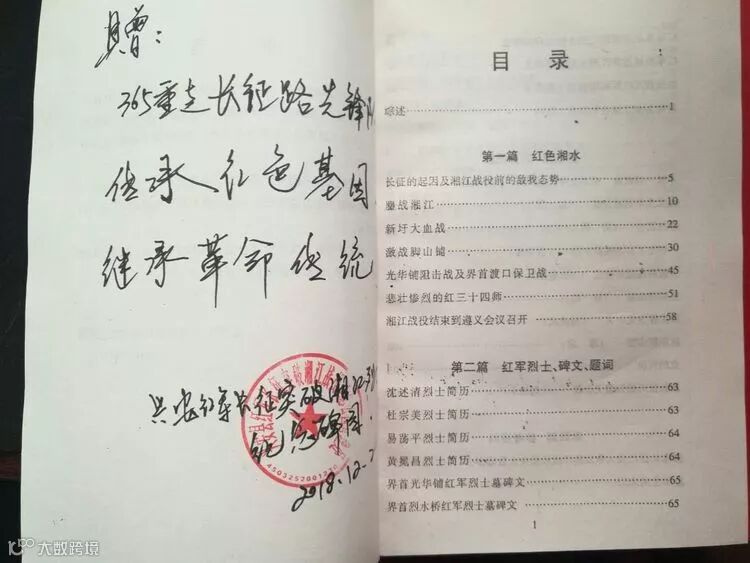 贈：
365重走长征路先锋队
传承红色基因
继承革命传统
兴安红军长征突破湘江
纪念碑园
2018.12.
4503252001
目 录
综述 1
第一篇 红色湘水
长征的起因及湘江战役前的敌我态势 5
鏖战湘江 10
新圩大血战 22
激战脚山铺 30
光华铺阻击战及界首渡口保卫战 45
悲壮惨烈的红三十四师 51
湘江战役结束到遵义会议召开 58
第二篇 红军烈士、碑文、题词
沈述清烈士简历 63
杜宗美烈士简历 63
易荡平烈士简历 64
黄冕昌烈士简历 64
界首光华铺红军烈士墓碑文 65
界首烈水桥红军烈士墓碑文 65
1
大数跨境